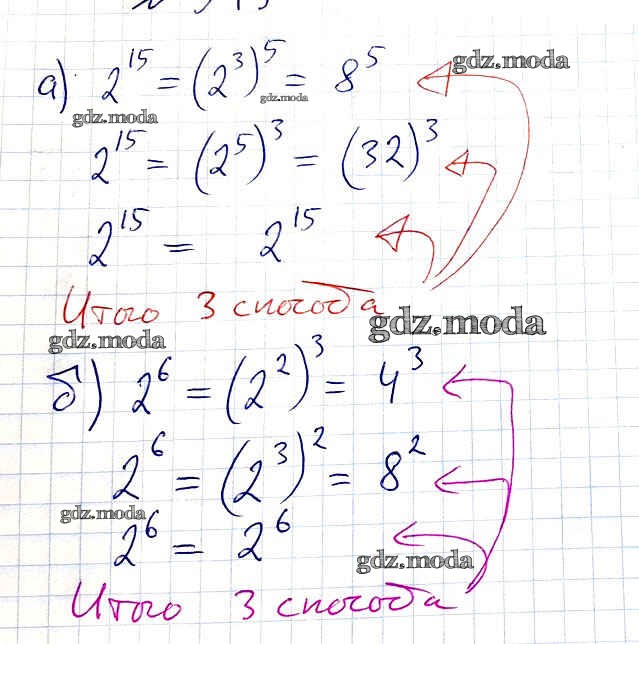 а) 2^15 = (2^3)^5 = 8^5
gdz.moda
gdz.moda
gdz.moda
2^15 = (2^5)^3 = (32)^3
2^15 = 2^15
Итого 3 способа
gdz.moda
gdz.moda
б) 2^6 = (2^2)^3 = 4^3
2^6 = (2^3)^2 = 8^2
gdz.moda
2^6 = 2^6
gdz.moda
Итого 3 способа